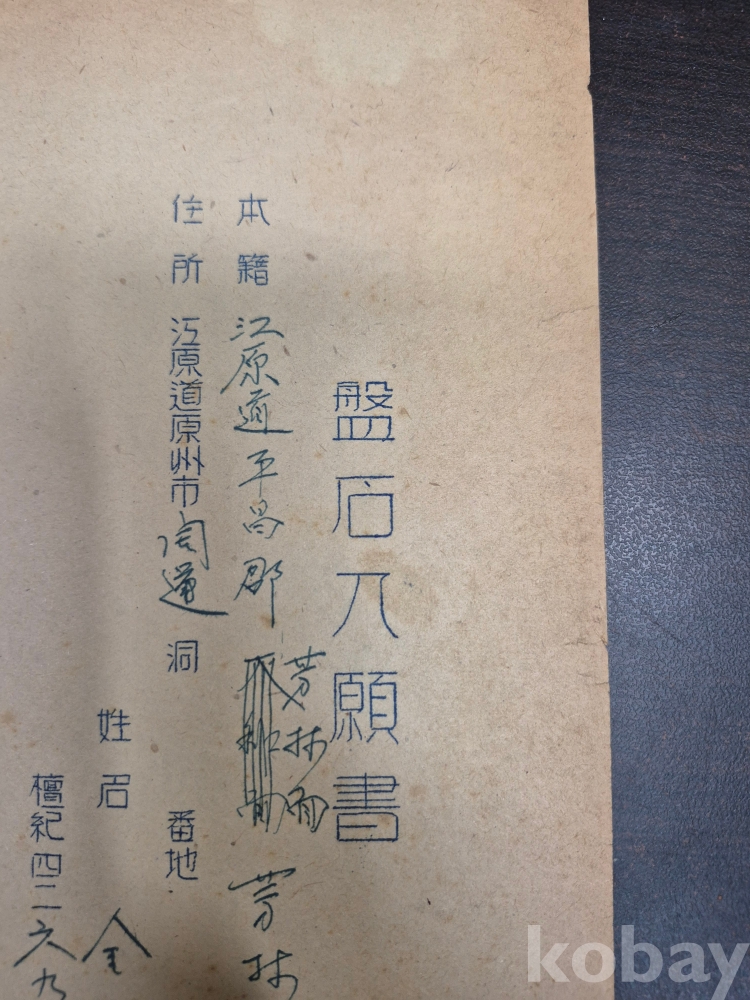 盤石入願書
本籍 江原道平昌郡 芳林面 芳林
住所 江原道原州市 洞 番地
姓名 金
檀紀四二六九
kobay